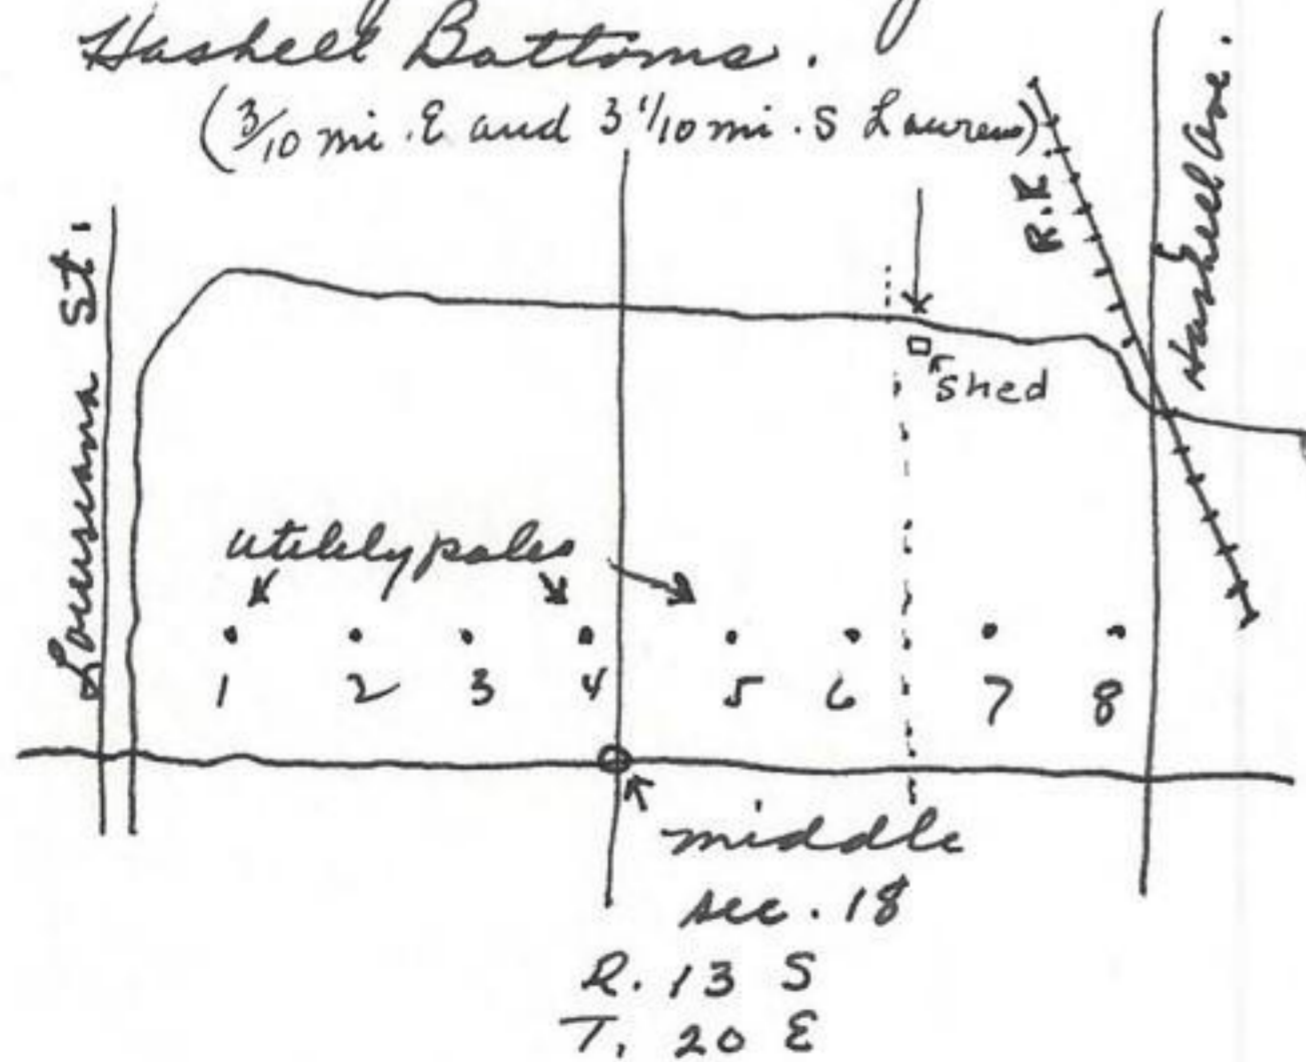 Haskell Bottoms.
(3/10 mi. E and 3 1/10 mi. S Lawrence)
R.R
Haskell Ave.
Louisiana St.
shed
utility poles
1 2 3 4 5 6 7 8
middle
sec. 18
R. 13 S
T. 20 E